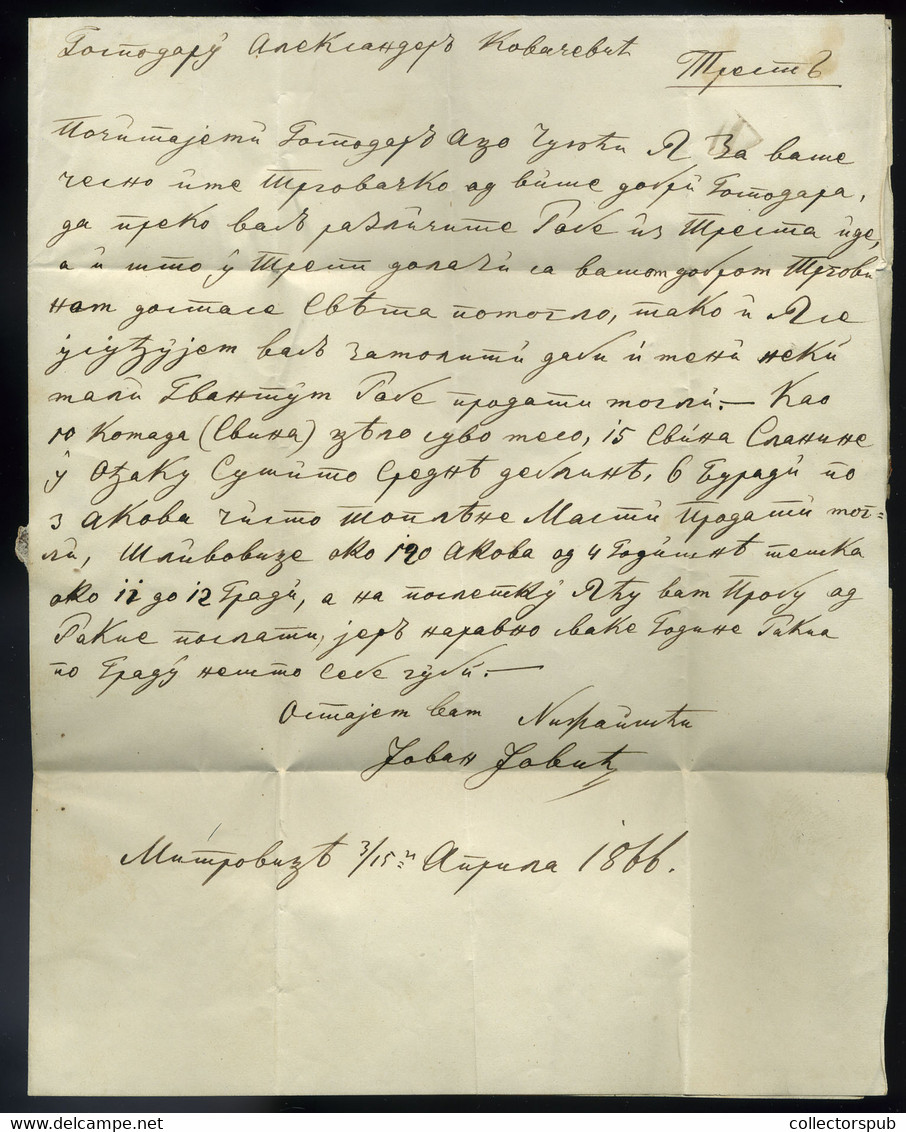 Господару Александеръ Ковачевић
Трестъ
Почитајети Господаръ Ацо Чујући Я За ваше
чесно име Трговачко од више добри Господара,
да преко васъ различите Робе из Треста иде,
а и што у Трест долази са вашом добром Тргови
ном достасе Свѣта помогло, тако и Я се
усуђујем васъ замолити даби и мени неки
мали Квантум Робе продати могли. — Као
10 Комада (Свина) зѣло суво месо, 15 Свина Сланине
у Оџаку Сушито Среднѣ деблинѣ, 6 Буради по
3 Акова Чисто Топлѣне Масти Продати мог=
ли, Шливовице око 120 Акова од 4 Годишнѣ тешка
око 11 до 12 Гради, а на послетку Яћу вам Пробу од
Ракие послати, јеръ наравно сваке Године Ракиа
по Граду нешто Себе губи. —
Остајем вам
Јован Јовић
Митровицѣ 3/15 Априла 1866.
collectorspub